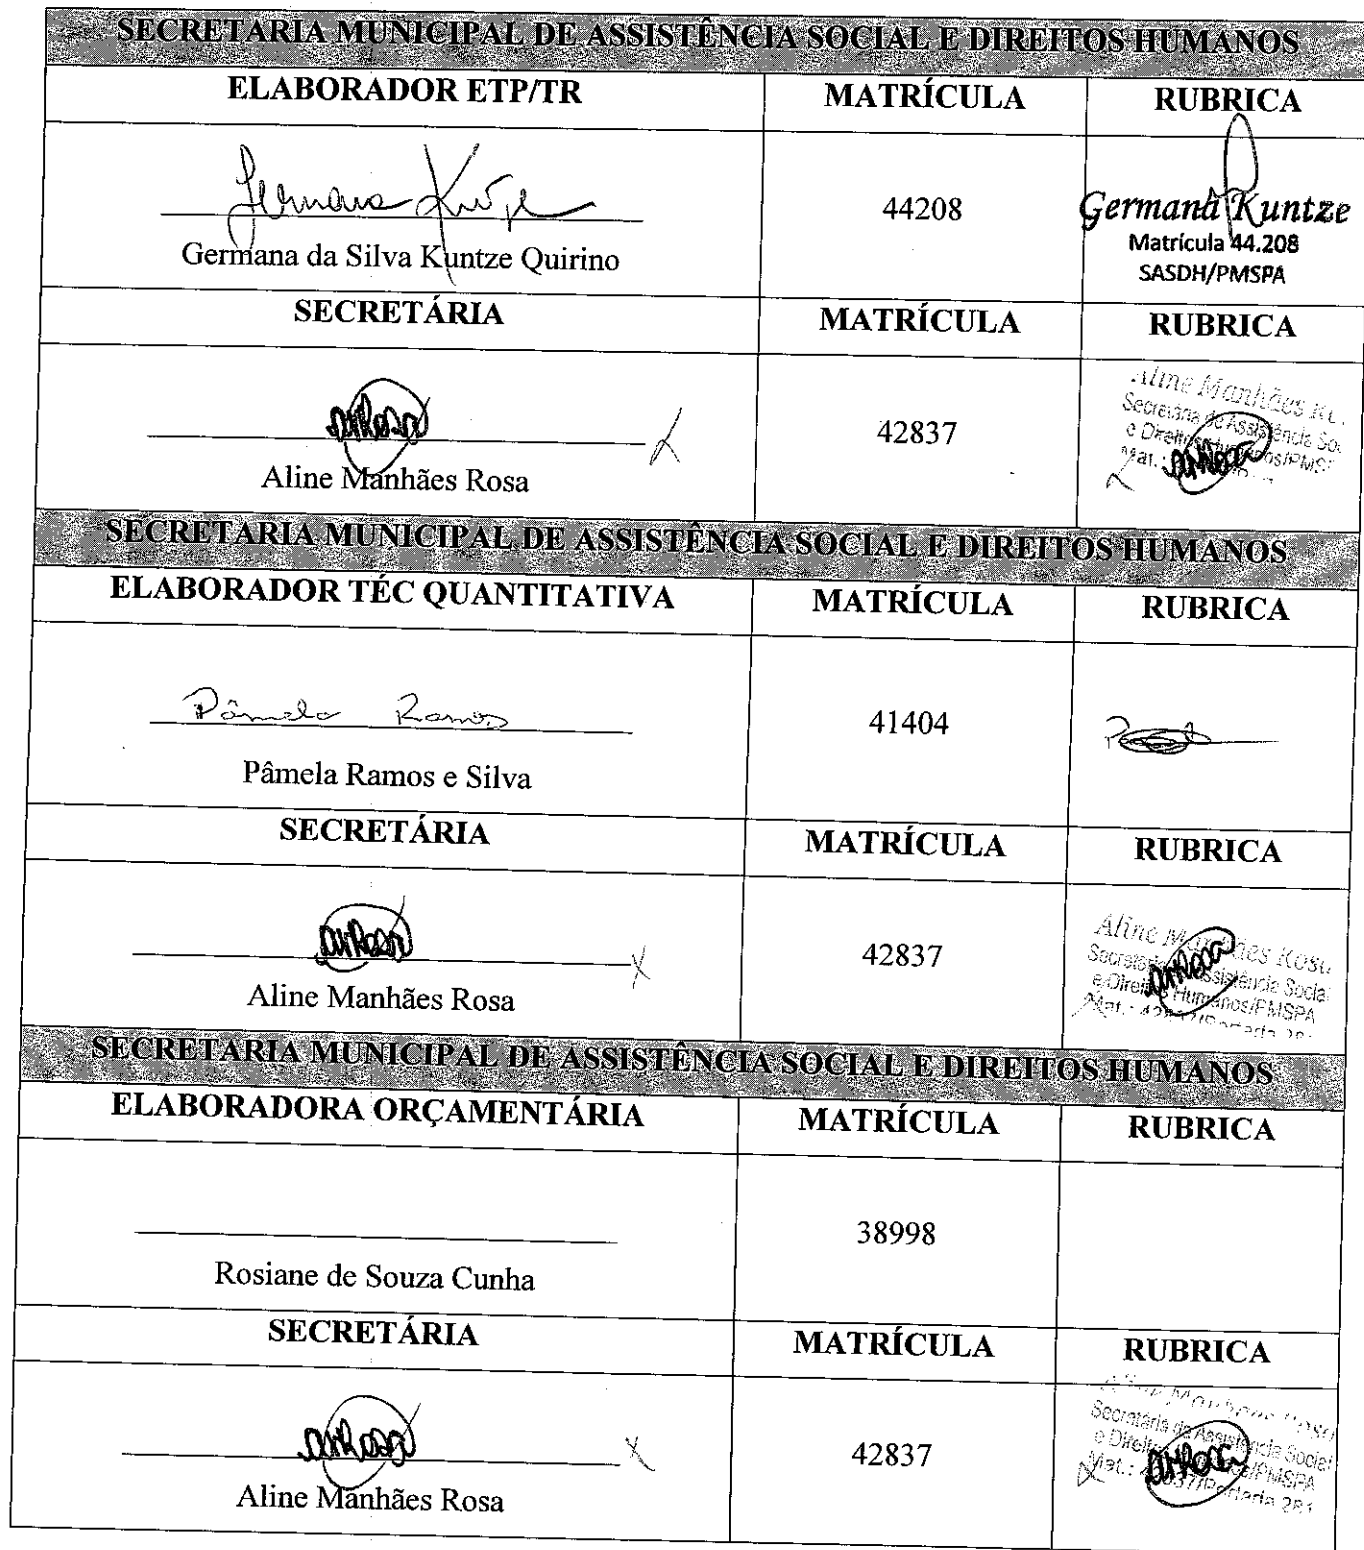 SECRETARIA MUNICIPAL DE ASSISTÊNCIA SOCIAL E DIREITOS HUMANOS
ELABORADOR ETP/TR MATRÍCULA RUBRICA
Germana Kuntze
Germana da Silva Kuntze Quirino
44208
Germana Kuntze
Matrícula 44.208
SASDH/PMSPA
SECRETÁRIA MATRÍCULA RUBRICA
AMRosa
Aline Manhães Rosa
42837
Aline Manhães
Secretária de Assistência
e Direitos
Mat.:
AMRosa
SECRETARIA MUNICIPAL DE ASSISTÊNCIA SOCIAL E DIREITOS HUMANOS
ELABORADOR TÉC QUANTITATIVA MATRÍCULA RUBRICA
Pâmela Ramos
Pâmela Ramos e Silva
41404
SECRETÁRIA MATRÍCULA RUBRICA
AMRosa
Aline Manhães Rosa
42837
Aline Manhães Rosa
Assistência Social
e Direitos Humanos/PMSPA
Mat.:
AMRosa
SECRETARIA MUNICIPAL DE ASSISTÊNCIA SOCIAL E DIREITOS HUMANOS
ELABORADORA ORÇAMENTÁRIA MATRÍCULA RUBRICA
Rosiane de Souza Cunha
38998
SECRETÁRIA MATRÍCULA RUBRICA
AMRosa
Aline Manhães Rosa
42837
Secretária de Assistência Social
e Direitos /PMSPA
Mat.: 42837/Portaria 281
AMRosa